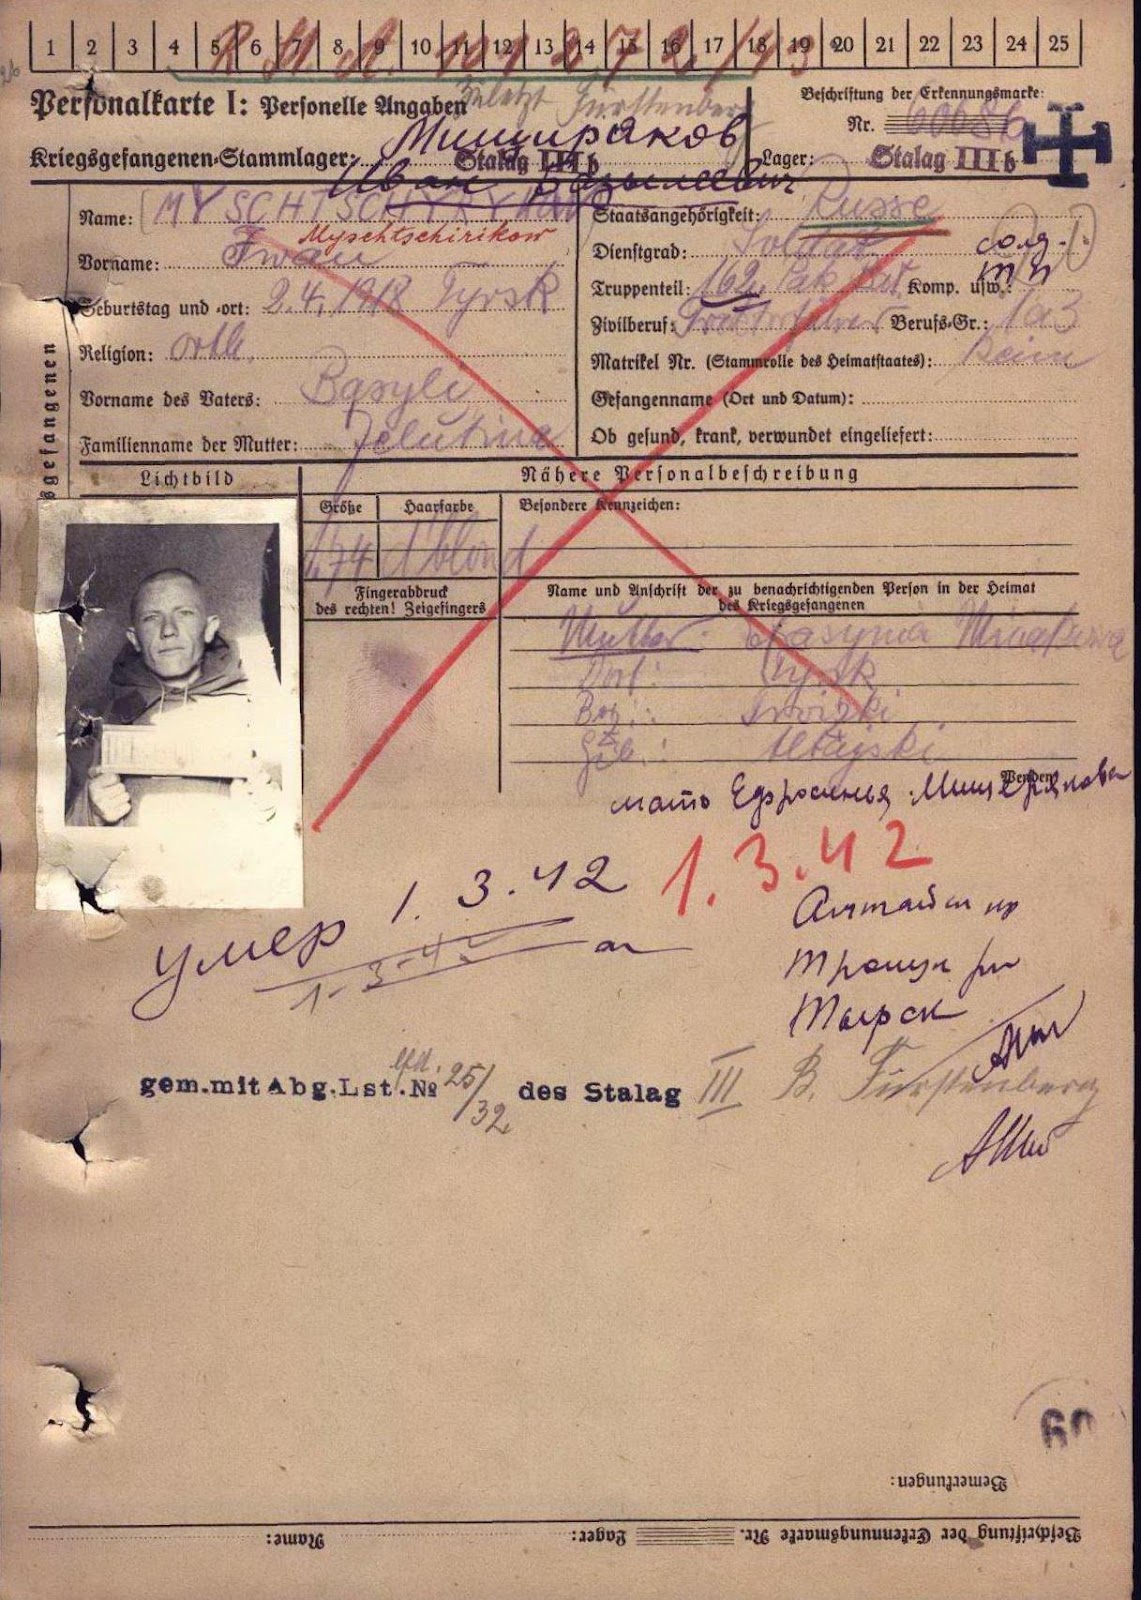 1 2 3 4 5 6 7 8 9 10 11 12 13 14 15 16 17 18 19 20 21 22 23 24 25
Personalkarte I: Personelle Angaben
zuletzt Fürstenberg
Beschriftung der Erkennungsmarke:
Nr. 60686
Мищиряков
Kriegsgefangenen-Stammlager: Stalag III b
Lager: Stalag III b
Иван Базылеевич
Name: MYSCHTSCHYRYKOW
Myschtschirikow
Vorname: Iwan
Geburtstag und -ort: 2.4.1918 Tyrsk
Religion: orth.
Vorname des Vaters: Basyle
Familienname der Mutter: Jelutina
Staatsangehörigkeit: Russe
Dienstgrad: Soldat солд.
Truppenteil: 162. Pak Bat. Komp. usw.:
Zivilberuf: Berufs-Gr.: 1a3
Matrikel Nr. (Stammrolle des Heimatstaates): keine
Gefangenname (Ort und Datum):
Ob gesund, krank, verwundet eingeliefert:
gefangenen
Lichtbild
Nähere Personalbeschreibung
Größe Haarfarbe Besondere Kennzeichen:
1.74 d'blond
Fingerabdruck
des rechten! Zeigefingers
Name und Anschrift der zu benachrichtigenden Person in der Heimat
des Kriegsgefangenen
Mutter:
Dorf: Tyrsk
Bez.: Troizki
Geb.: Altajski
Wenden
мать Ефросинья Мищерякова
1.3.42
умер 1.3.42
1-3-42
Алтайский кр
Троицк рн
Тырск
gem. mit Abg. Lst. lfd. № 25/32 des Stalag III B. Fürstenberg
60
Bemerkungen:
Beschriftung der Erkennungsmarke Nr. Lager: Name: